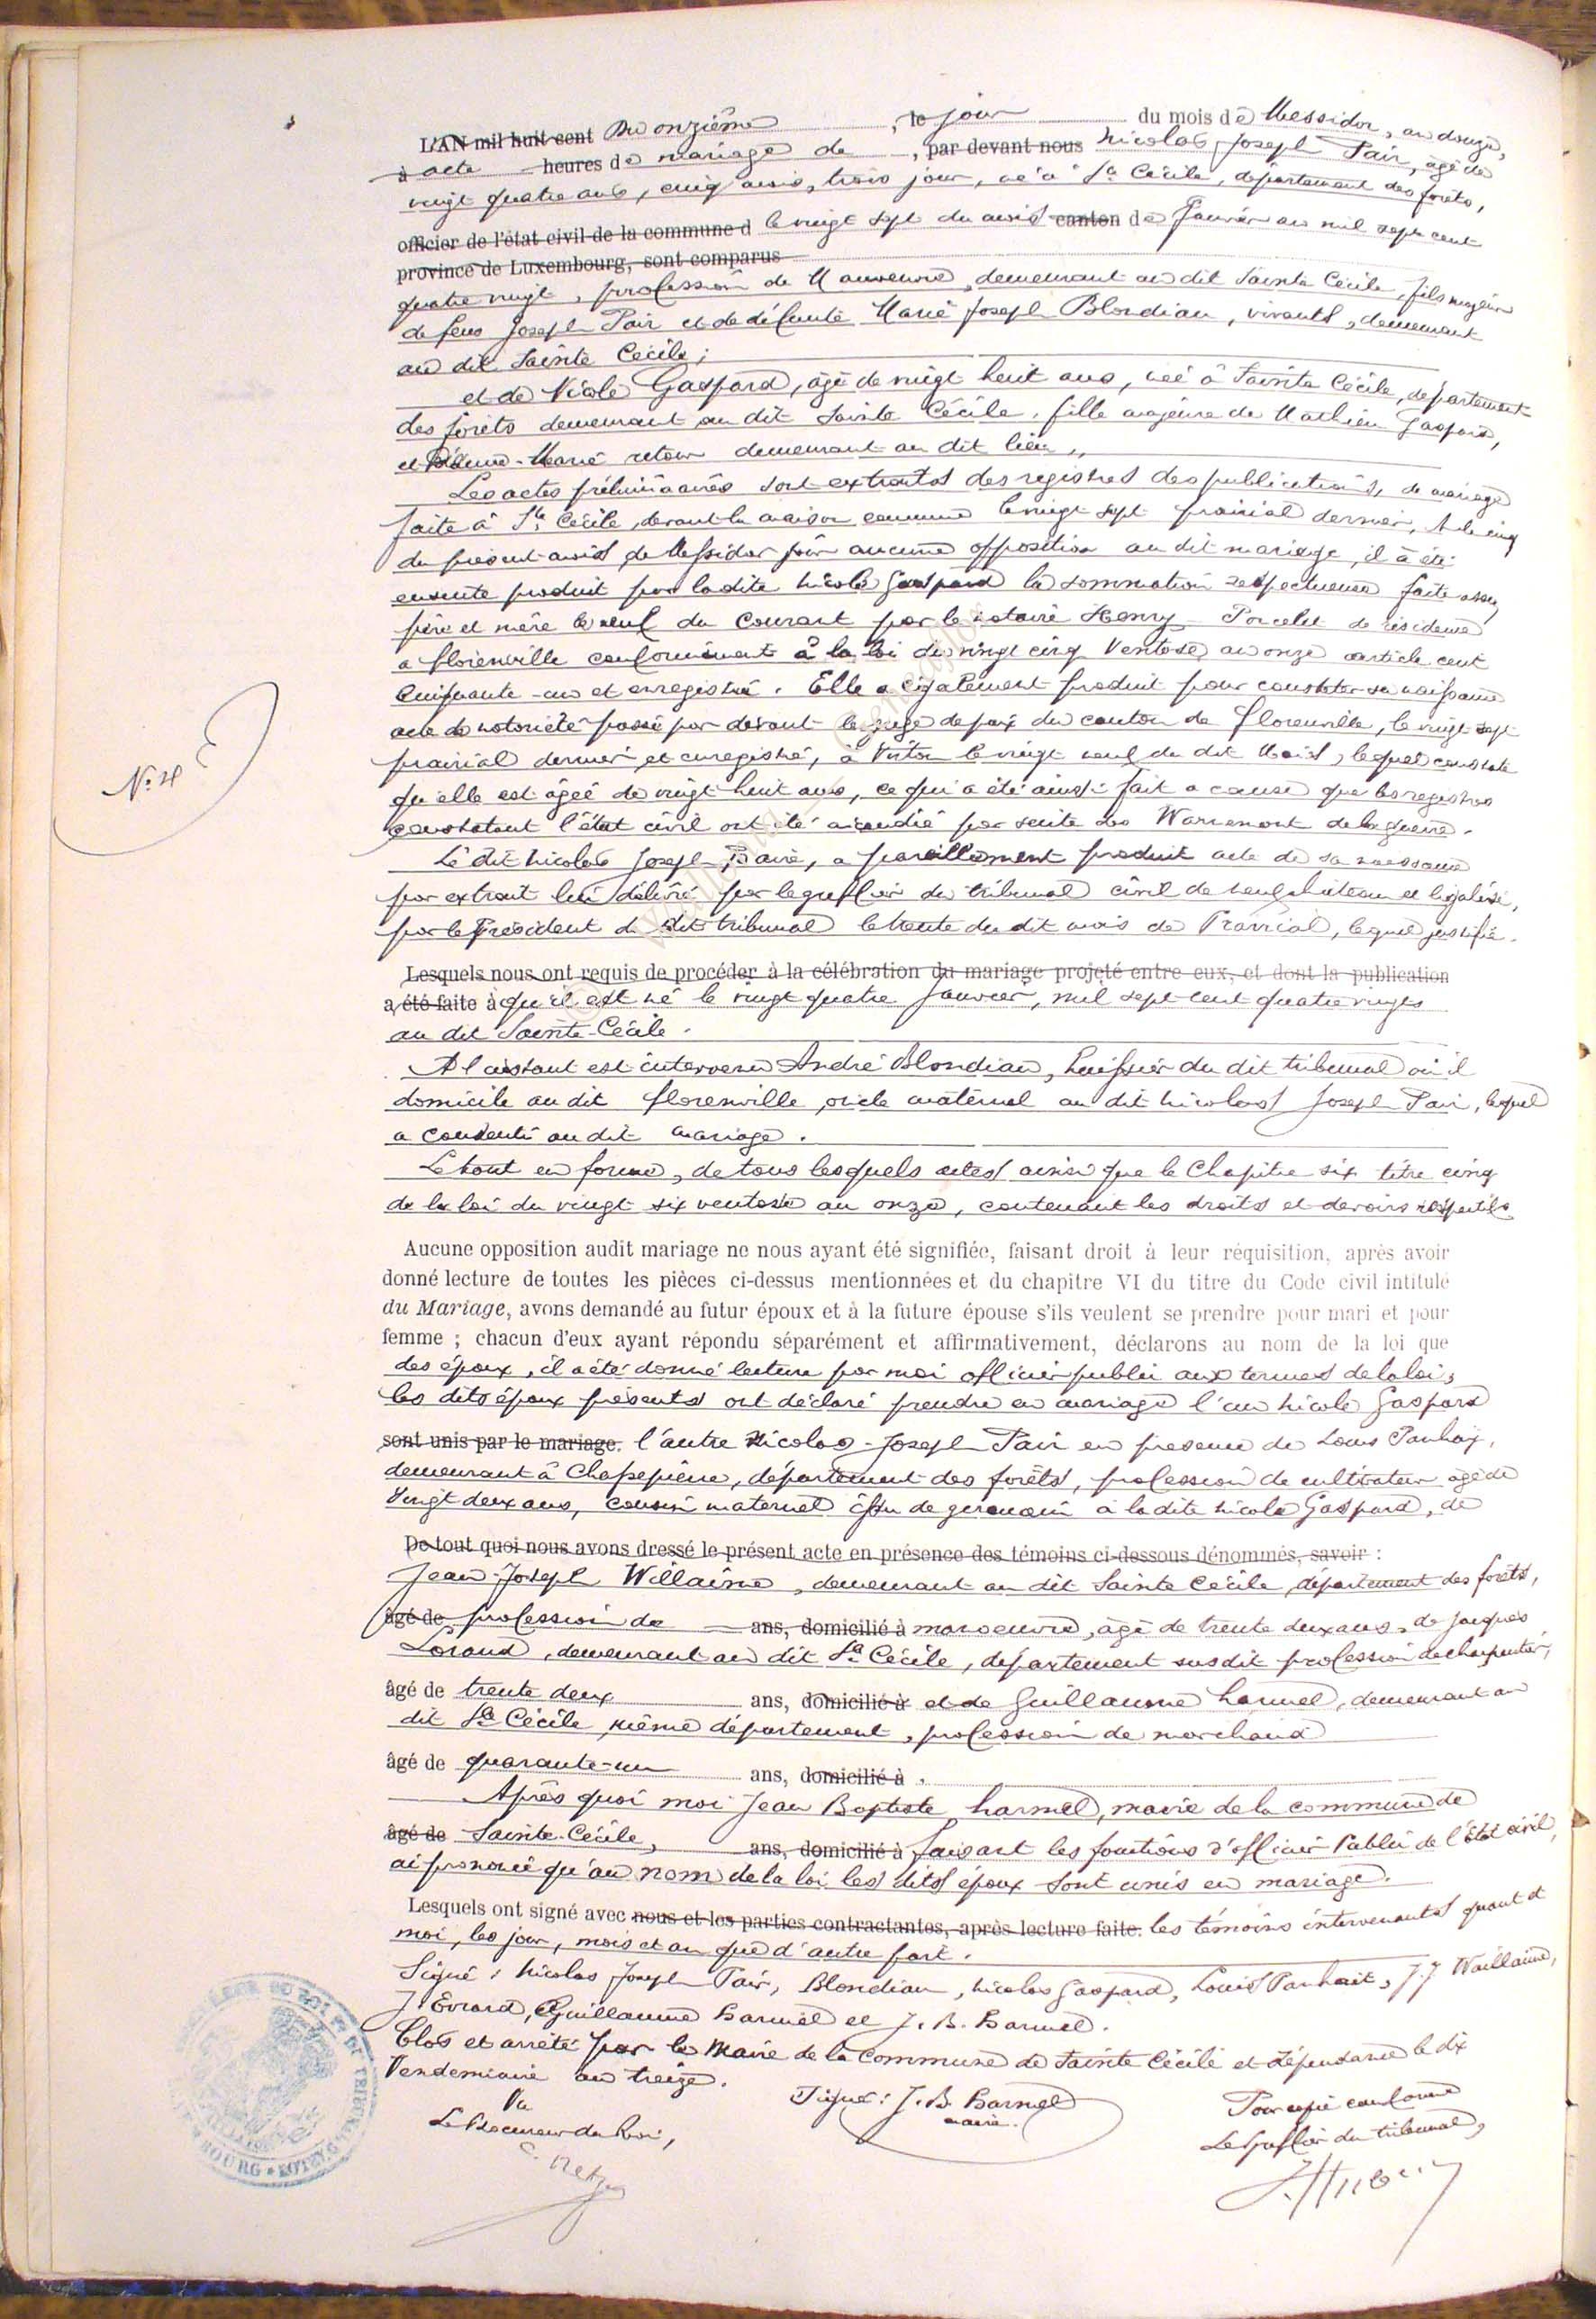 L'AN mil huit cent Du onzième, le jour du mois de Messidor, an douze,
à acte heures de mariage de, par devant nous Nicolas Joseph Pair, âgé de
vingt quatre ans, cinq mois, trois jour, né à Ste Cécile, département des forêts,
officier de l'état civil de la commune d le vingt sept du mois canton de Janvier an mil sept cent
province de Luxembourg, sont comparus
quatre vingt, profession de Manœuvre, demeurant au dit Sainte Cécile, fils majeur
de feu Joseph Pair et de défunte Marie Joseph Blondiau, vivants, demeurant
au dit Sainte Cécile;
et de Nicole Gaspard, âgé de vingt huit ans, née à Sainte Cécile, département
des forêts demeurant au dit Sainte Cécile, fille majeure de Mathieu Gaspard,
et Marie retour demeurant au dit lieu,,
Les actes préliminaires sont extraits des registres des publications, de mariage
faite à Ste Cécile, devant la maison commune le vingt sept prairial dernier, & le cinq
du présent mois de Messidor aucune opposition au dit mariage, il a été
ensuite produit par ladite Nicole Gaspard la sommation respectueuse faite à ses
père et mère le neuf du courant par le notaire Henry Porcelet de résidence
a florenville conformément à la loi du vingt cinq Ventose an onze article cent
cinquante un et enregistré. Elle a également produit pour constater sa naissance
acte de notoriété passé par devant le juge de paix du canton de florenville, le vingt sept
prairial dernier et enregistré, à Virton le vingt neuf du dit Mois, lequel constate
qu'elle est âgée de vingt huit ans, ce qui a été ainsi fait a cause que les registres
constatant l'état civil ont été incendié par suite de la guerre.
Le dit Nicolas Joseph Pair, a pareillement produit acte de sa naissance
par extrait lui délivré par le greffier du tribunal civil de neufchateau et légalisé,
par le Président du dit tribunal le trente du dit mois de Prairial, lequel justifie.
Lesquels nous ont requis de procéder à la célébration du mariage projeté entre eux, et dont la publication
a été faite à qu'il est né le vingt quatre Janvier, mil sept cent quatre vingts
au dit Sainte-Cécile.
A l'instant est intervenu André Blondiau, huissier du dit tribunal où il
domicile au dit florenville, oncle maternel au dit Nicolas Joseph Pair, lequel
a consenti au dit mariage.
Le tout en forme, de tous lesquels actes ainsi que le Chapitre six titre cinq
de la loi du vingt six ventose an onze, contenant les droits et devoirs respectifs
Aucune opposition audit mariage ne nous ayant été signifiée, faisant droit à leur réquisition, après avoir
donné lecture de toutes les pièces ci-dessus mentionnées et du chapitre VI du titre du Code civil intitulé
du Mariage, avons demandé au futur époux et à la future épouse s'ils veulent se prendre pour mari et pour
femme ; chacun d'eux ayant répondu séparément et affirmativement, déclarons au nom de la loi que
des époux, il a été donné lecture par moi officier public aux termes de la loi,
les dits époux présents ont déclaré prendre en mariage l'un Nicole Gaspard
sont unis par le mariage. l'autre Nicolas-Joseph Pair en presence de Louis Panhay,
demeurant à Chassepierre, département des forêts, profession de cultivateur âgé de
Vingt deux ans, cousin maternel issu de germain à la dite Nicole Gaspard, de
De tout quoi nous avons dressé le présent acte en présence des témoins ci-dessous dénommés, savoir :
Jean-Joseph Willaime, demeurant au dit Sainte Cécile, département des forêts,
âgé de profession de ans, domicilié à manœuvre, âgé de trente deux ans, de Jacques
Lorand, demeurant au dit Ste Cécile, département susdit profession de charpentier,
âgé de trente deux ans, domicilié à et de Guillaume harmel, demeurant au
dit Ste Cécile même département, profession de marchand
âgé de quarante-un ans, domicilié à .
Après quoi moi Jean Baptiste harmel, maire de la commune de
âgé de Sainte-Cécile, ans, domicilié à faisant les fonctions d'officier Public de l'état civil,
ai prononcé qu'au nom de la loi les dits époux sont unis en mariage.
Lesquels ont signé avec nous et les parties contractantes, après lecture faite. les témoins intervenants quant et
moi, les jour, mois et an que d'autre part.
Signé : Nicolas Joseph Pair, Blondiau, Nicolas Gaspard, Louis Panhait, J. J Waillaime,
J. Evrard, Guillaume Harmel et J. B. Harmel.
Clos et arrêté par le Maire de la Commune de Sainte Cécile et dépendance le dix
Vendemiaire an treize.
Signé: J. B. Harmel
maire.
Vu
Le Procureur du Roi,
Pour copie conforme
Le Greffier du tribunal,
N° 4